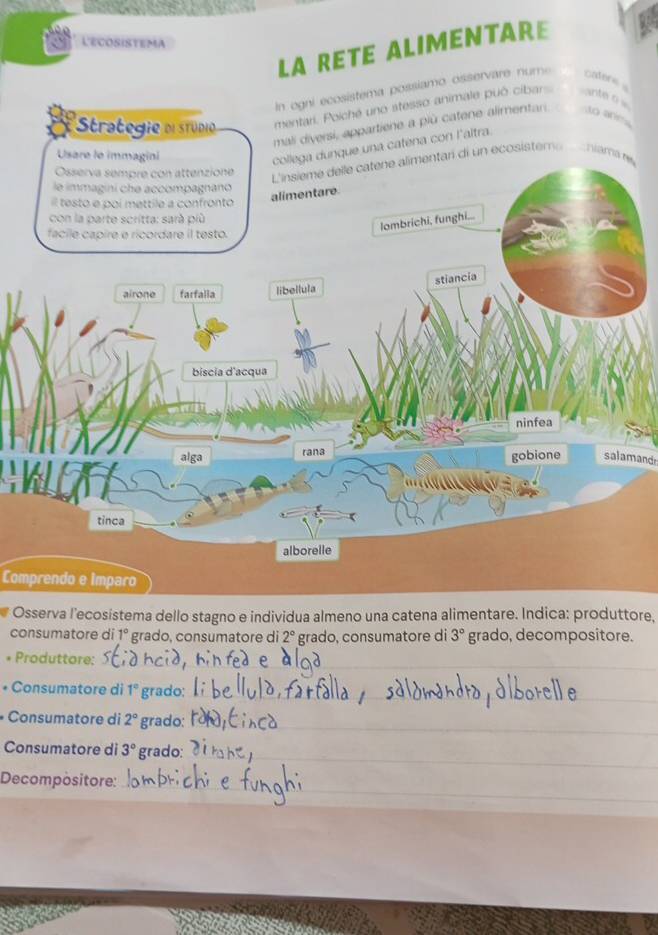 L'ECOSISTEMA
LA RETE ALIMENTARE
In ogni ecosistema possiamo osservare catene
mentari. Poiché uno stesso animale può cibarsi
mali diversi, appartiene a più catene alimentari.
collega dunque una catena con l'altra.
L'insieme delle catene alimentari di un ecosistema chiama
alimentare.
Strategie DI STUDIO
Usare le immagini
Osserva sempre con attenzione
le immagini che accompagnano
il testo e poi mettile a confronto
con la parte scritta: sarà più
facile capire e ricordare il testo.
lombrichi, funghi...
airone
farfalla
libellula
stiancia
biscia d'acqua
ninfea
alga
rana
gobione
salamandr
tinca
alborelle
Comprendo e Imparo
Osserva l'ecosistema dello stagno e individua almeno una catena alimentare. Indica: produttore,
consumatore di 1° grado, consumatore di 2° grado, consumatore di 3° grado, decompositore.
• Produttore: stiancia, ninfea e alga
• Consumatore di 1° grado: libellula, farfalla, salamandra, alborelle
• Consumatore di 2° grado: rana, tinca
Consumatore di 3° grado: airone,
Decompositore: lombrichi e funghi